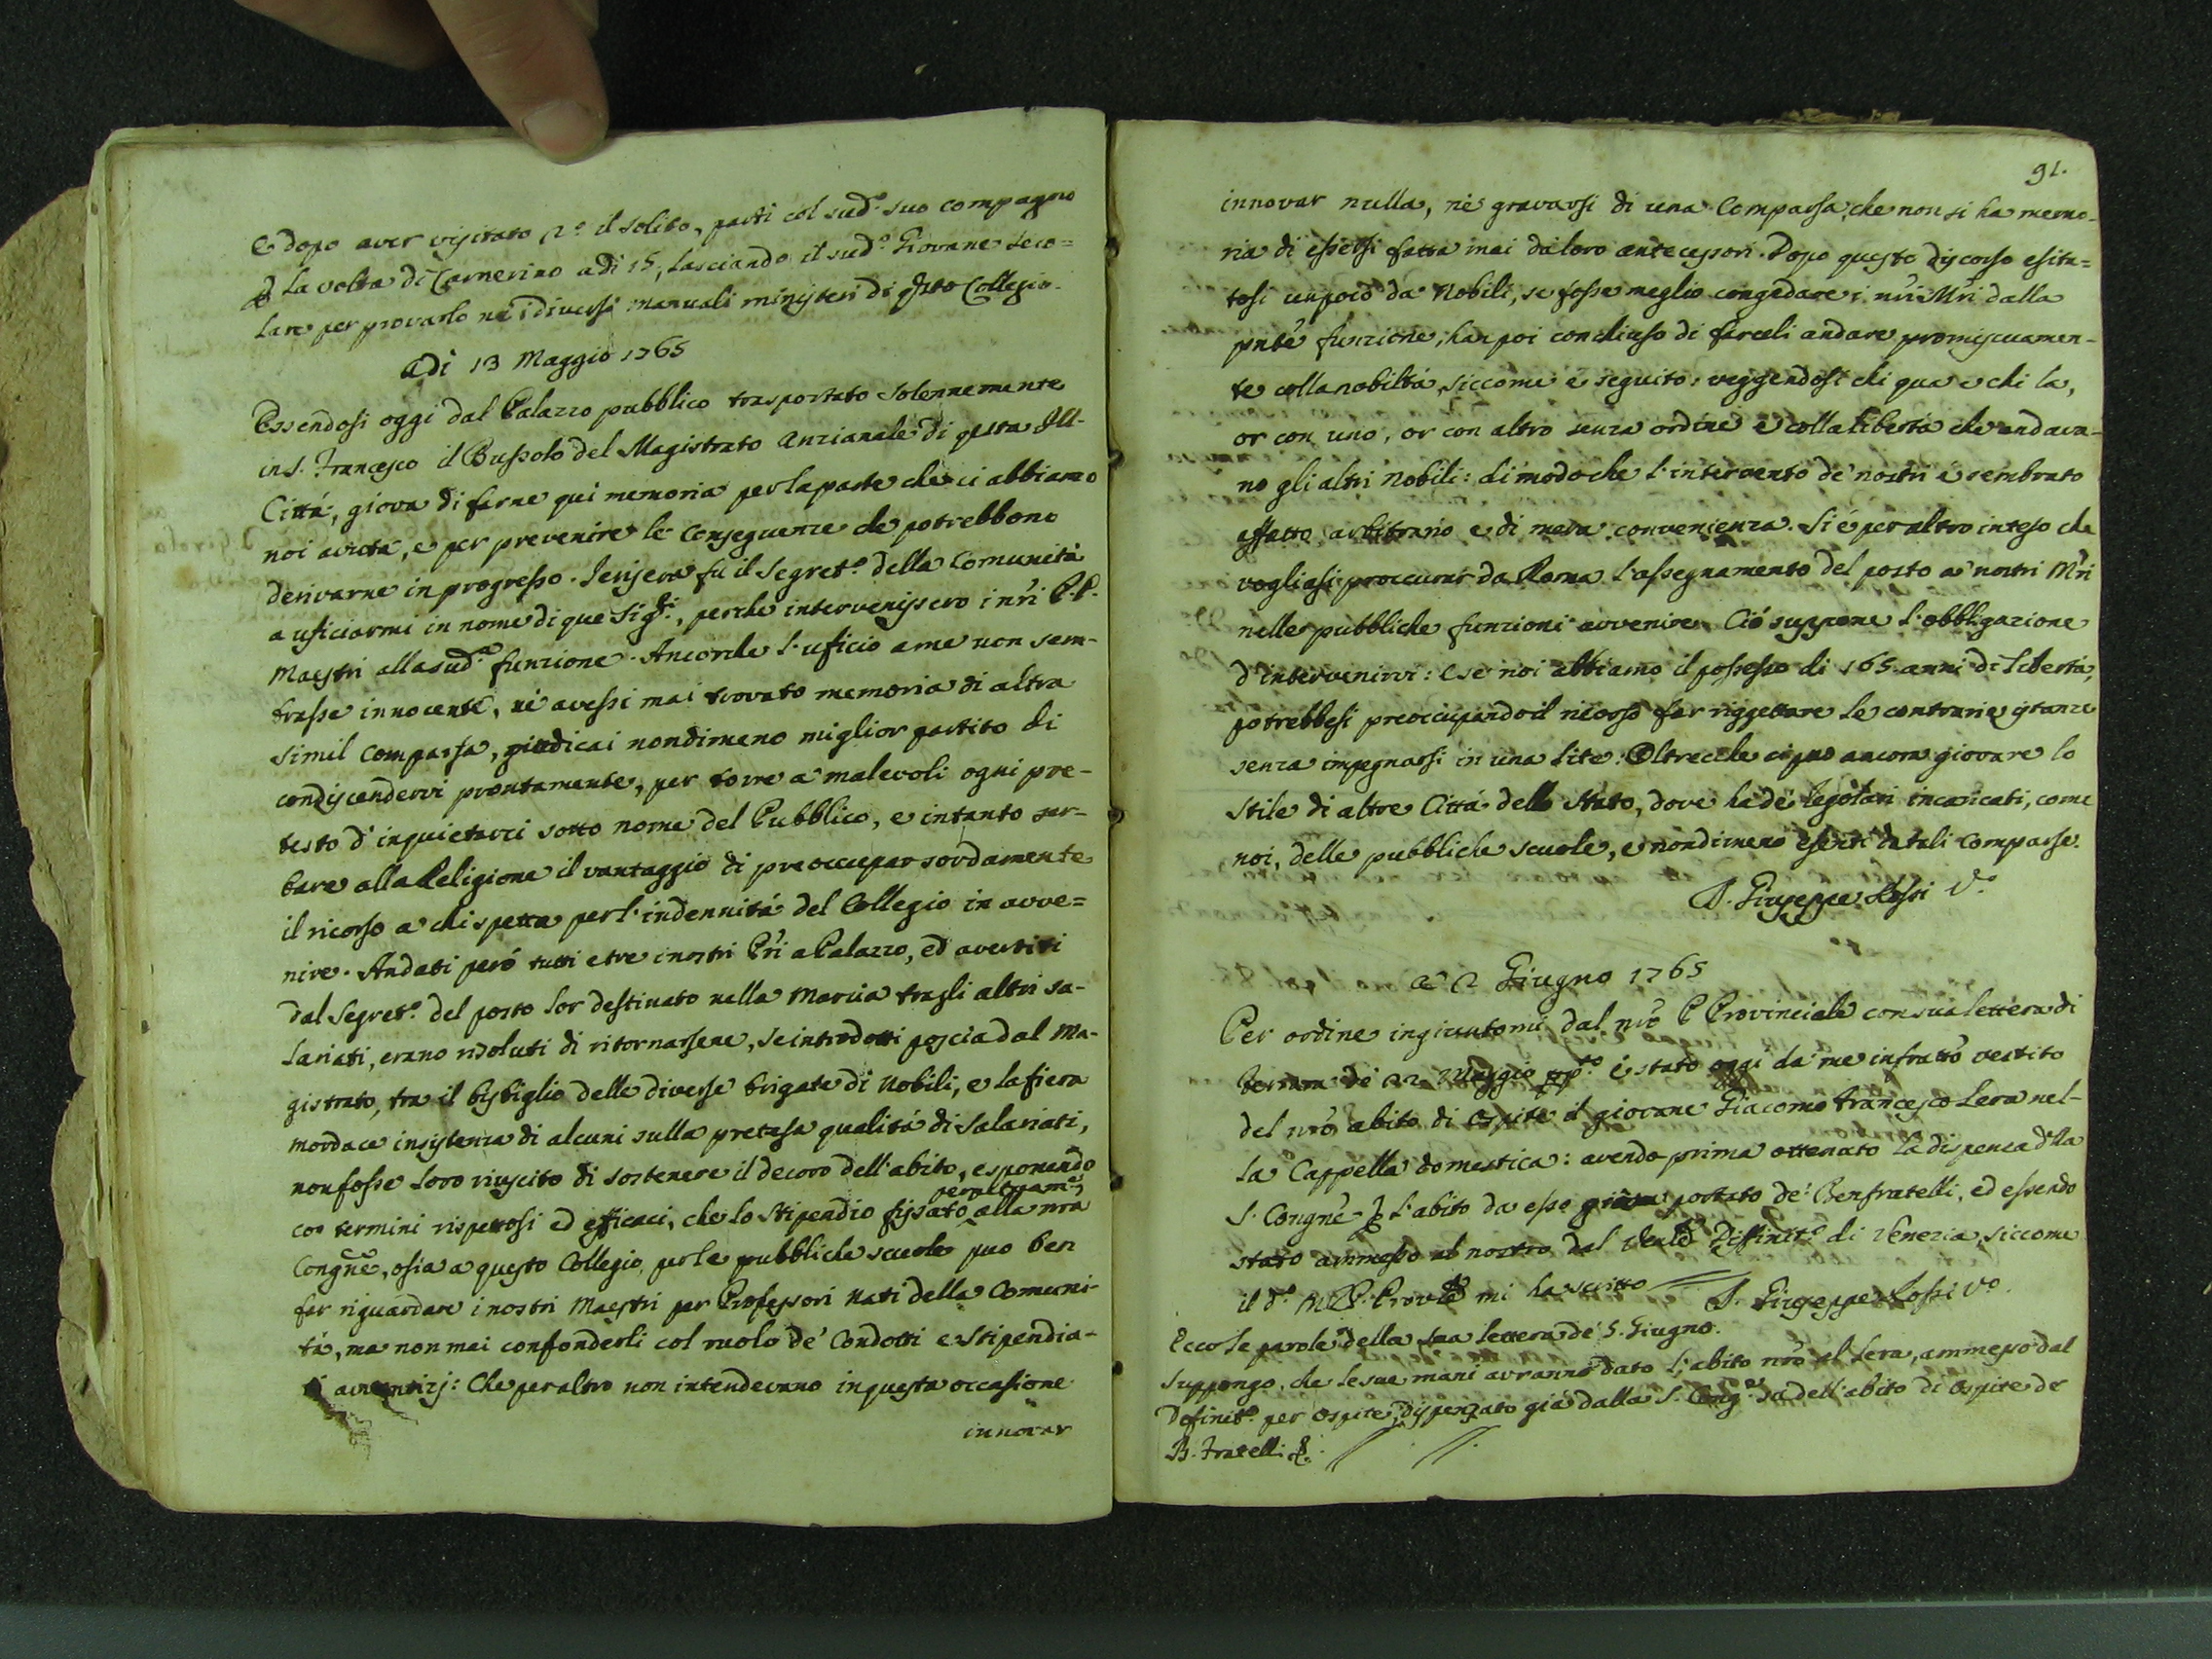 E dopo aver visitato 2.o il solito, partì col sud.o suo compagno
p la volta di Camerino adi 15, lasciando il sud.o Giovane seco=
lare per provarlo ne i diversi manuali ministeri di qsto Collegio.
Adi 13 Maggio 1765
Essendosi oggi dal Palazzo pubblico trasportato solennemente
in S. Francesco il Bussolo del Magistrato Anzianale di qsta Ill.
Città, giova di farne quì memoria per la parte che ci abbiamo
noi avuta, e per prevenire le conseguenze che potrebbono
derivarne in progresso. Jerisera fu il Segret.o della Comunità
a uficiarmi in nome di que Sig.ri, perche intervenissero i nri P.P.
Maestri alla sud.a funzione. Ancorche l'uficio a me non sem-
brasse innocente, nè avessi mai trovato memoria di altra
simil comparsa, giudicai nondimeno miglior partito di
condiscendervi prontamente, per torre a' malevoli ogni pre-
testo d'inquietarci sotto nome del Pubblico, e intanto ser-
bare alla Religione il vantaggio di preoccupar sordamente
il ricorso a chi spetta per l'indennità del Collegio in avve=
nire. Andati però tutti e tre i nostri Pri a Palazzo, ed avertiti
dal Segret.o del posto lor destinato nella Marcia tragli altri sa-
lariati, erano risoluti di ritornarsene, se introdotti poscia dal Ma-
gistrato, tra il bisbiglio delle diverse brigate di Nobili, e la fiera
mordace insistenza di alcuni sulla pretesa qualità di Salariati,
non fosse loro riuscito di sostenere il decoro dell'abito, esponendo
peraltram.e
con termini rispettosi ed efficaci, che lo Stipendio fissato alla nra
Congne, osia a questo Collegio, per le pubbliche scuole può ben
far riguardare i nostri Maestri per Professori nati della Comuni-
tà, ma non mai confonderli col ruolo de' Condotti e Stipendia-
ti avventizj: Che peraltro non intendevano in questa occasione
innovar
91.
innovar nulla, nè gravarsi di una Comparsa, che non si ha memo-
ria di essersi fatta mai da' loro antecessori. Dopo questo discorso esita=
tosi un poco da' Nobili, se fosse meglio congedare i nri Mri dalla
pnte funzione, han poi conchiuso di farceli andare promiscuamen-
te colla nobiltà, siccome è seguito: veggendosi chi qua e chi la,
or con uno, or con altro senza ordine e colla libertà che andava-
no gli altri Nobili: di modo che l'intervento de' nostri è sembrato
effetto arbitrario e di mera convenienza. Si è per altro inteso che
vogliasi proccurar da Roma l'assegnamento del posto a' nostri Mri
nelle pubbliche funzioni avvenire. Ciò suppone l'obbligazione
d'intervenirvi: e se noi abbiamo il possesso di 165 anni di libertà,
potrebbesi preoccupando il ricorso far riggettare le contrarie istanze
senza impegnarsi in una lite: Oltrecche ci può ancora giovare lo
stile di altre Città dello Stato, dove ha de' Regolari incaricati, come
noi, delle pubbliche scuole, e nondimeno esenti da tali comparse.
D. Giuseppe Rossi V.o
a' 2 Giugno 1765
Per ordine ingiuntomi dal nro P Provinciale con sua lettera di
Ferrara de' 22 Maggio pp.o è stato oggi da me infratto vestito
del nro abito di ospite il giovane Giacomo Francesco Lera nel-
la Cappella domestica: avendo prima ottenuto la dispenza dlla
S. Congne p l'abito da esso già portato de' Benfratelli, ed essendo
stato ammesso al nostro dal Vente Diffinit.o di Venezia, siccome
il d.o M.R.P. Provle mi ha scritto D. Giuseppe Rossi V.o
Ecco le parole della sua lettera de' 5. Giugno.
Suppongo, che le sue mani avranno dato l'abito nro al Lera, ammesso dal
Definit.o per ospite, dispenzato già dalla S. Cong.e sa dell'abito di ospite de'
B. Fratelli &.